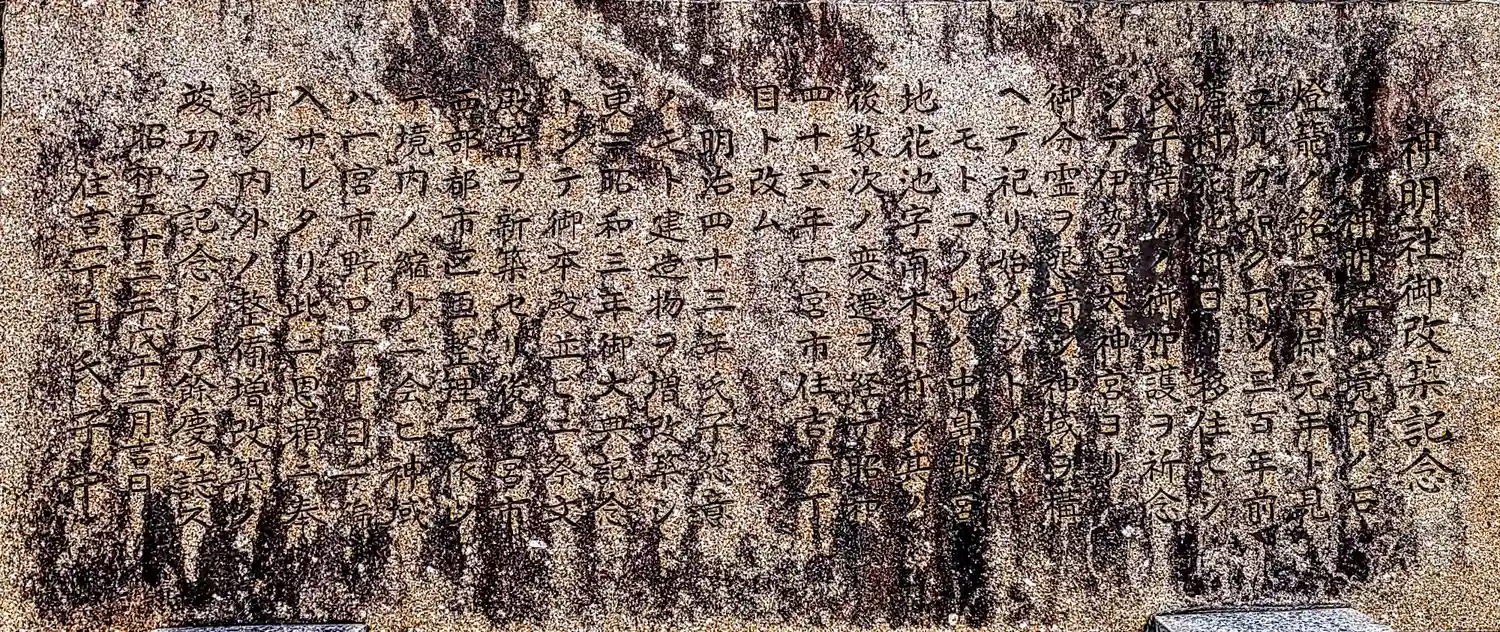 神明社御改築記念
コノ神明社ハ境内ノ石
燈籠ノ銘ニ享保元年ト見
ユルガ如ク凡ソ三百年前
隣村花池村ヨリ移住セシ
氏子等ノ御加護ヲ祈念
シテ伊勢皇大神宮ヨリ
御分霊ヲ懇請シ神域ヲ
ヘテ祀リ始メタシトイフ
モトコノ地ハ中島郡宮
地花池字南木ト称シ其ノ
後数次ノ変遷ヲ経テ昭和
四十六年一宮市住吉一丁
目ト改ム
明治四十三年氏子
ノモト建造物ヲ増改築シ
更ニ昭和三年御大典記念
トシテ御本改並ビニ祭文
殿等ヲ新築セリ後一宮市
西部都市区画整理ニ依シ
テ境内ノ縮少ニ会ヒ神域
ハ一宮市野口一丁目ニ編
入サレタリ此ニ恩頼ニ奉
謝シ内外ノ整備増改築ノ
竣功ヲ記念シテ餘慶ヲ誌ス
昭和五十三年 月吉日
住吉一丁目 氏子中